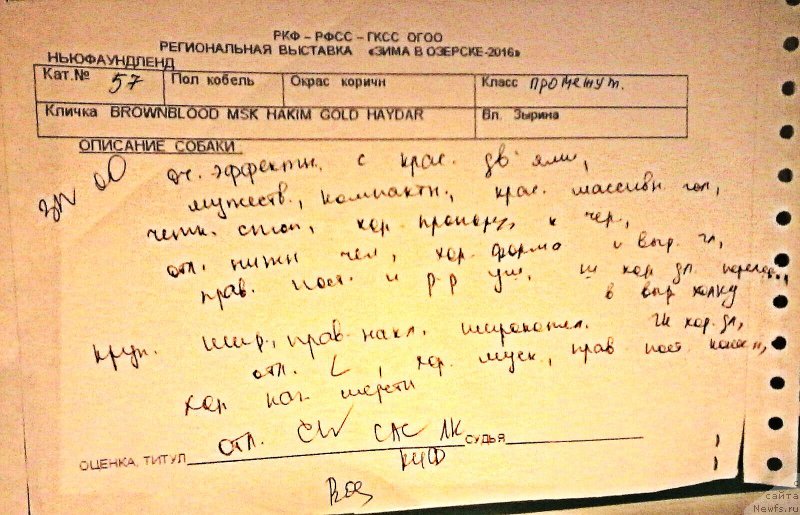 РКФ – РФСС – ГКСС ОГОО
РЕГИОНАЛЬНАЯ ВЫСТАВКА «ЗИМА В ОЗЕРСКЕ-2016»
НЬЮФАУНДЛЕНД
Кат.№ 57 Пол кобель Окрас коричн Класс промежут.
Кличка BROWNBLOOD MSK HAKIM GOLD HAYDAR Вл. Зырина
ОПИСАНИЕ СОБАКИ
зп оч. эффектн. с крас. дв-ями,
мужеств., компактн., крас. массивн гол,
четк. стоп, хор. пропорц, к чер,
отл. нижн чел, хор. форма и выр. гл,
прав. пост. и р-р уш, ш хор. дл.
в выр холку
круп. шир, прав. накл, ГК хор. дл,
отл. L, хор. муск, прав пост. конечн,
хор. кач. шерсти
отл. CW САС ЛК
ОЦЕНКА, ТИТУЛ СУДЬЯ
КЧФ
с сайта
Newfs.ru